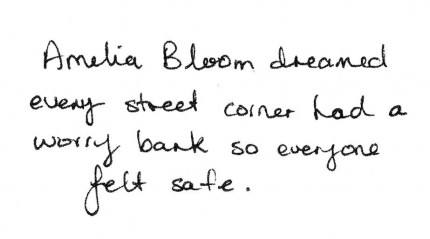 Amelia Bloom dreamed
every street corner had a
worry bank so everyone
felt safe.